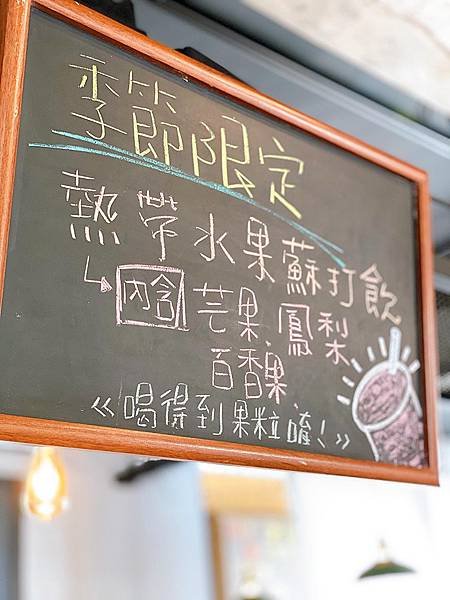 季節限定
熱帶水果蘇打飲
↳ 內含 芒果、鳳梨
百香果、
《喝得到果粒唷！》